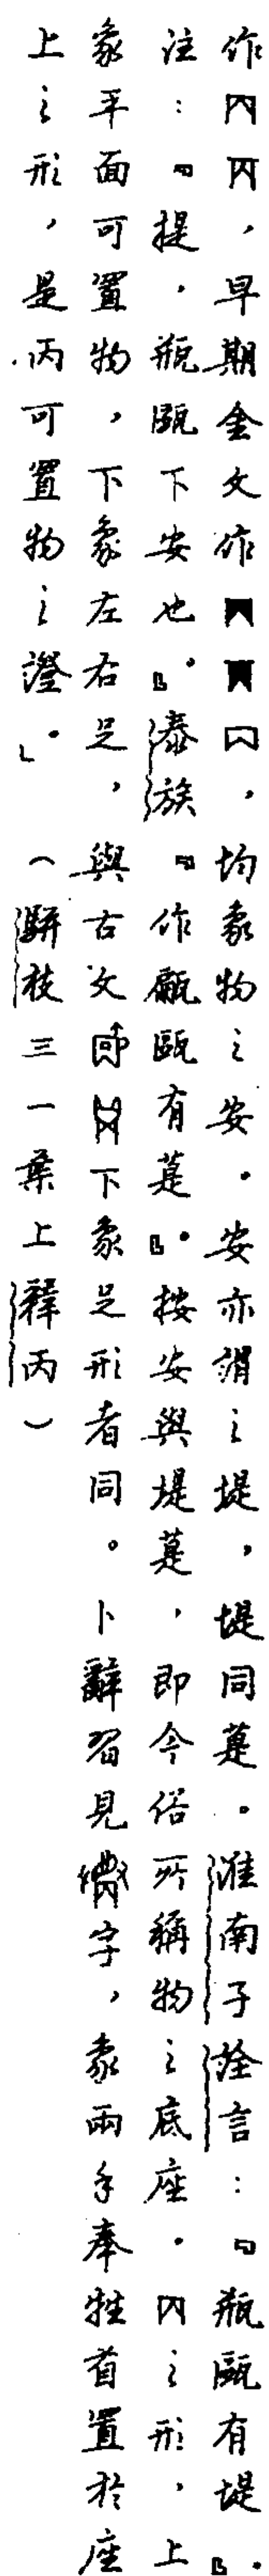 作，早期金文作，均象物之安。安亦謂之堤，堤同䓳。淮南子詮言：『瓶甌有堤』。
注：『提，瓶甌下安也』。泰族『作甂甌有䓳』。按安與堤䓳，即今俗所稱物之底座。丙之形，上
象平面可置物，下象左右足，與古文下象足形者同。卜辭習見字，象兩手奉牲首置於座
上之形，是丙可置物之證。」（駢枝三一葉上釋丙）